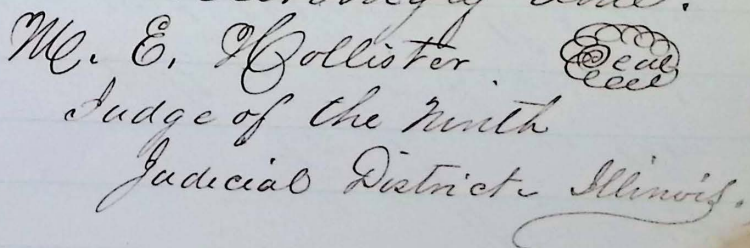 M. E. Hollister Seal
Judge of the Ninth
Judicial District Illinois.